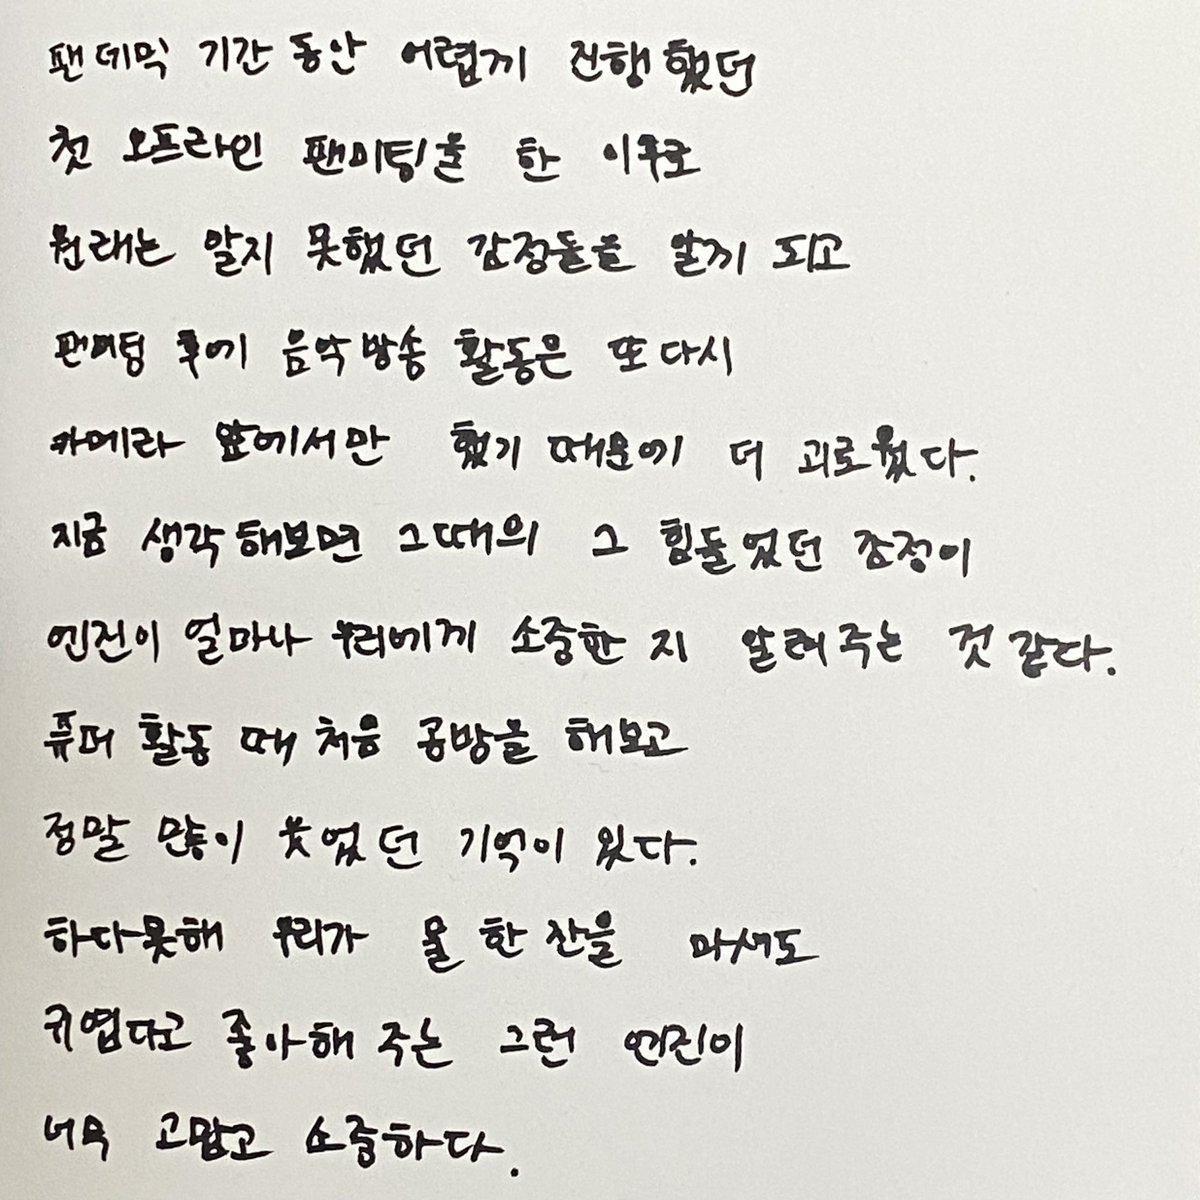 팬데믹 기간 동안 어렵게 진행했던
첫 오프라인 팬미팅을 한 이후로
원래는 알지 못했던 감정들을 알게 되고
팬미팅 후에 음악방송 활동은 또 다시
카메라 앞에서만 했기 때문에 더 괴로웠다.
지금 생각해보면 그때의 그 힘들었던 감정이
엔진이 얼마나 우리에게 소중한 지 알려주는 것 같다.
퓨퍼 활동 때 처음 공방을 해보고
정말 많이 웃었던 기억이 있다.
하다못해 우리가 물 한 잔을 마셔도
귀엽다고 좋아해 주는 그런 엔진이
너무 고맙고 소중하다.